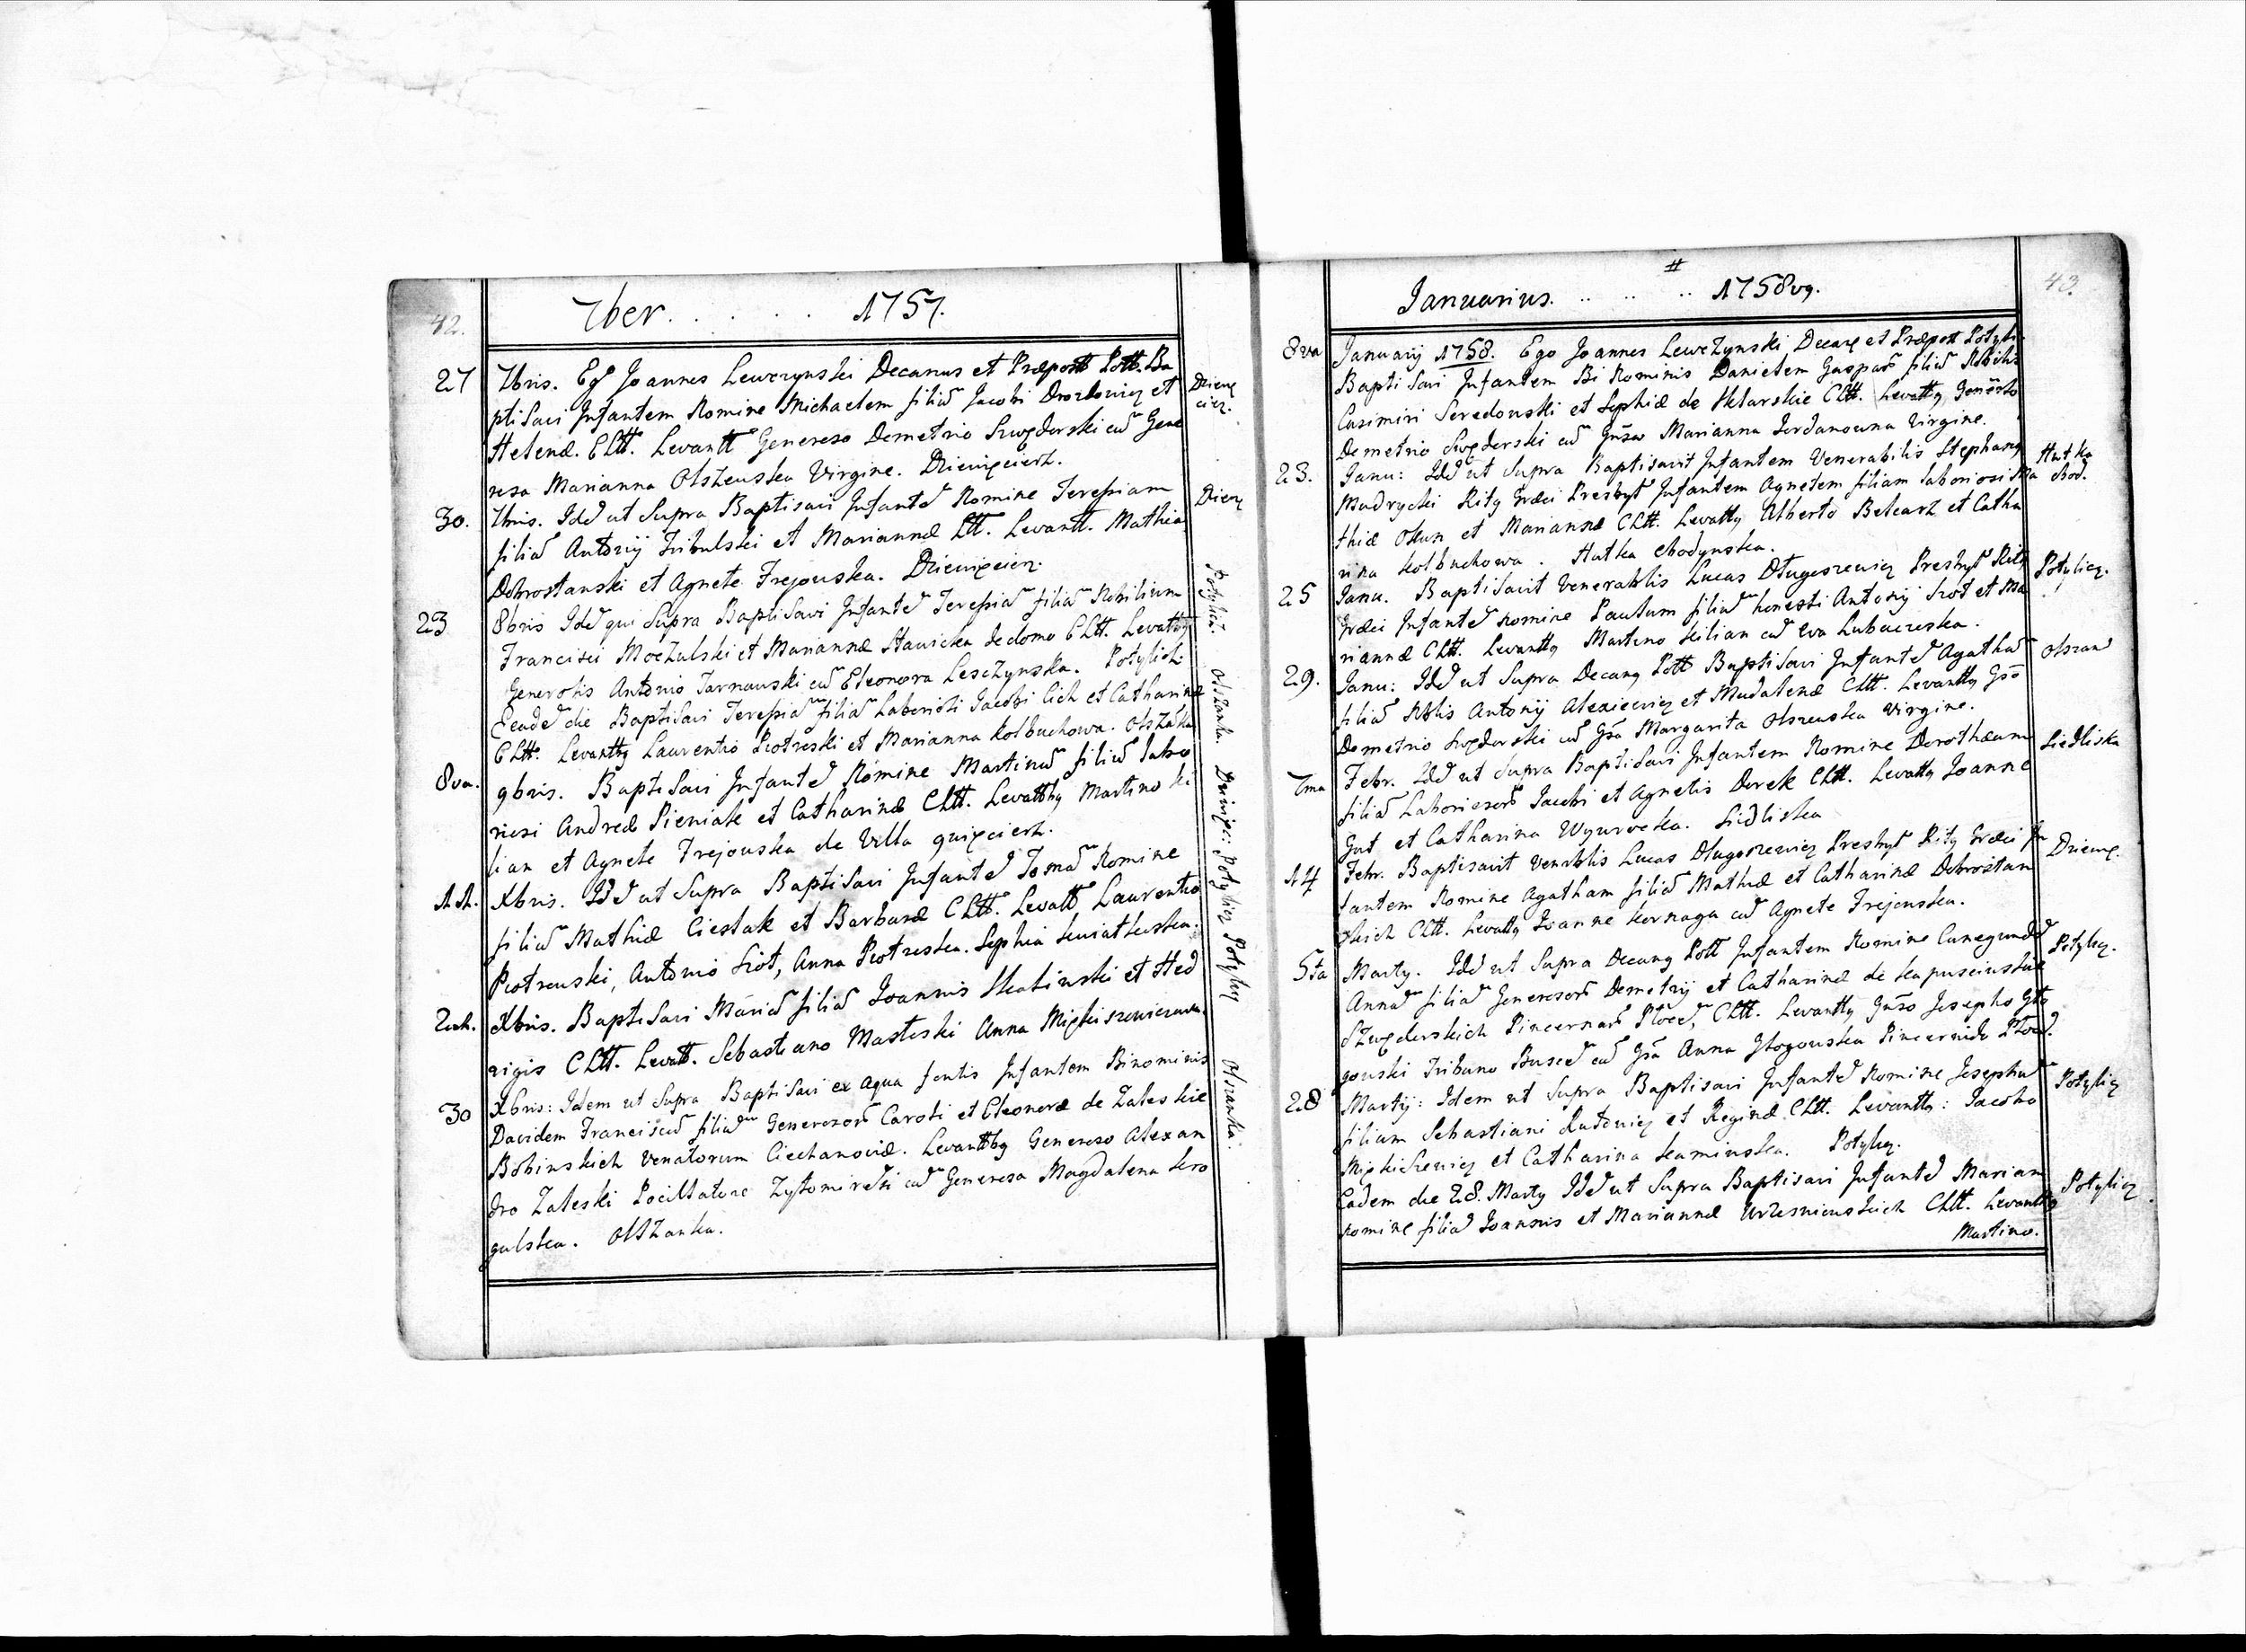 42.
7ber. . . . . . 1757.
27
7bris. Ego Joannes Lewczynski Decanus et Præpostt Pott. Ba
ptisavi Infantem Nomine Michaelem filiū Jacobi Drozdowicz et
Helenæ. CLtt. Levantt Generoso Demetrio Swęderski cū Gene
rosa Marianna Olszewska Virgine. Dziewięcierz.
Dzienę
cierz.
30.
7bris. Idē ut Supra Baptisavi Infantē Nomine Teressiam
filiā Antonij Tribulski et Mariannæ Ltt. Levantt. Mathia
Dobrostanski et Agnete Frejowska. Dziewięcierz.
Dzierz
23
8bris Idē qui Supra Baptisavi Infantē Teressiā filiā Nobilium
Francisci Moczulski et Mariannæ Stawicka de domo CLtt. Levattby
Generosis Antonio Tarnawski cū Eleonora Lesczynska. Potylich
Potylicz.
Eeadē die Baptisavi Teressiā filiā Laboriosi Jacobi Cich et Catharinæ
CLtt. Levanttby Laurentio Piotrowski et Marianna Kolbuchowa. Olszāka
Olszanka.
8va.
9bris. Baptisavi Infantē Nomine Martinū filiū Labo
riosi Andreæ Pieniak et Catharinæ CLtt. Levattby Martino Ki
lian et Agnete Frejowska de Villa
Dziwięci:
11.
Xbris. Idē ut Supra Baptisavi Infantē Tomā Nomine
filiū Mathiæ Cieslak et Barbaræ CLtt. Levatt Laurentio
Piotrowski, Antonio Srot, Anna Piotrowska. Sophia Kwiatkowska.
Potylicz
Xbris. Baptisavi Mariā filiā Joannis Skabinski et Hed
vigis CLtt. Levatt. Sebastiano Masłoski Anna
Potylicz
30
Xbris: Idem ut Supra Baptisavi ex aqua fontis Infantem Binominis
Davidem Franciscū filiū Generosorū Caroli et Eleonoræ de Zaleskie
Bobinskich Venatorum Ciechanoviæ. Levanttby Generoso Alexan
dro Zaleski Pocillatore Zytomirēsi cū Generosa Magdalena Kro
gulska. Olszanka.
Olszanka.
43.
Januarius. .. .. .. 1758vg.
8va
January 1758. Ego Joannes Lewczynski Decanꝰ et Præpostt Potyli
Baptisavi Infantem Bi Nominis Danielem Gasparū filiū Nobiliū
Casimiri Seredowski et Sophiæ de Sklarskie CLtt. Levattby Gen̄roso
Demetrio Swęderski cū Gn̄sa Marianna Jordanowna Virgine.
23.
Janu: Idē ut Supra Baptisavit Infantem Venerabilis Stephany
Madrycki Rity Græci Presbyt Infantem Agnetem filiam laboriosi Ma
thiæ Okun et Mariannæ CLtt. Levattby Alberto Bekarz et Catha
rina Kolbuchowa. Hutka obodynska.
Hutka
obod.
25
Janu. Baptisavit Venerablis Lucas Długoszewicz Presbyt Rity
Græci Infantē Nomine Paulum filiū honesti Antonij Srot et Ma
riannæ CLtt. Levanttby Martino Kilian cū Eva Lubaczeska.
Potylicz.
29.
Janu: Idē ut Supra Decany Pott Baptisavi Infantē Agathā
filiā Nblis Antonij Alexiewicz et Madalenæ CLtt. Levanttby Gs̄o
Demetrio Swęderski cū Gs̄a Margarita Olszewska Virgine.
Olszan
7ma
Febr. Idē ut Supra Baptisavi Infantem Nomine Dorotheam
filiā Laboriosorū Jacobi et Agnetis Dorek CLtt. Levattby Joanne
Gut et Catharina Wyurocka. Siedliska
Siedliska
14
Febr. Baptisavit Venrblis Lucas Długoszewicz Presbyt Rity Græci In
fantem Nomine Agatham filiā Mathiæ et Catharinæ Dobrostan
skich CLtt. Levattby Joanne Kornaga cū Agnete Frejowska.
Dziewę.
5ta
Marty. Idē ut Supra Decany Pott Infantem Nomine Cunegundē
Annā filiā Generosorū Demetrij et Catharinæ de Kapuscinskie
Swęderskich Pincernarū Płocē, CLtt. Levanttby Gn̄so Josepho Gło
gowski Tribuno Buscē cū Gs̄a Anna Głogowska Pincernide Płocē.
Potylicz.
28
Martij: Idem ut Supra Baptisavi Infantē Nomine Josephū
filium Sebastiani Rutowicz et Reginæ CLtt. Levanttby: Jacobo
Miękisiewicz et Catharina Kaminska. Potylicz.
Potylicz
Eadem die 28. Marty Idē ut Supra Baptisavi Infantē Mariam
nomine filiā Joannis et Mariannæ Wrzesniewskich CLtt. Levanttby
Martino.
Potylicz